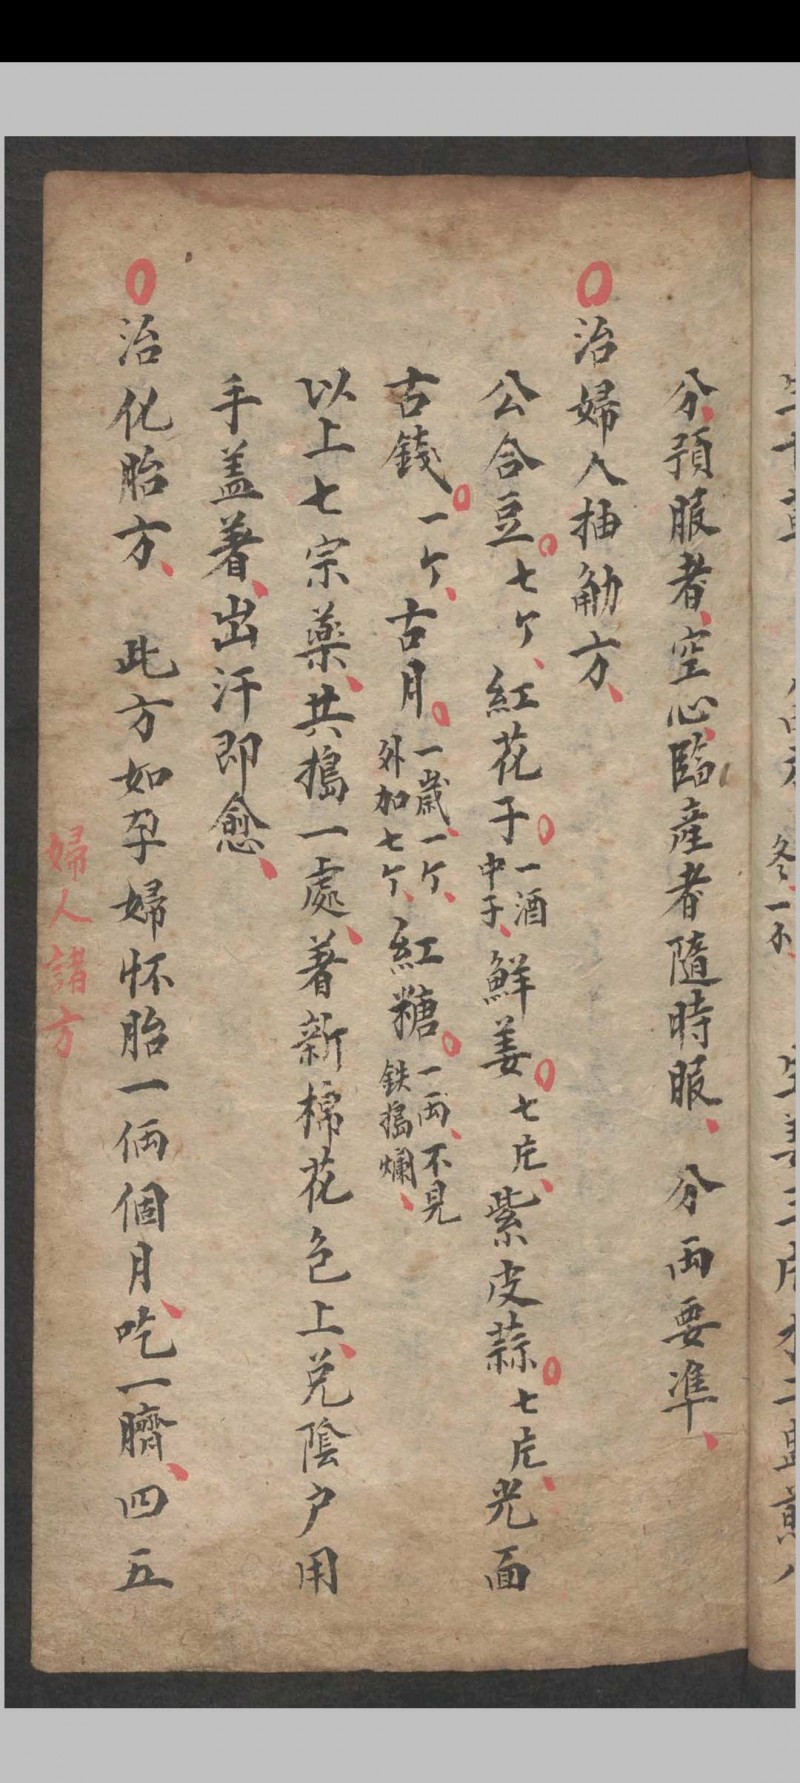 分預服者空心臨產者隨時服分兩要準
治婦人抽觔方
公合豆七个紅花子一酒中子鮮姜七片紫皮蒜七片光面
古錢一个古月一歲一个外加七个紅糖一兩不見鉄搗爛
以上七宗藥共搗一處著新棉花包上兑陰户用
手盖著出汗即愈
治化胎方 此方如孕婦怀胎一倆個月吃一臍四五
婦人諸方